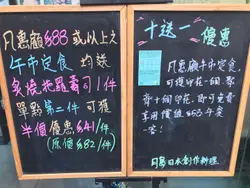 凡惠顧$88或以上之
午市定食 均送
炙燒拖羅壽司1件
單點第二件 可獲
半價優惠$41/件
(原價$82/件)
十送一 優惠
凡惠顧午市定食
可獲印花一個，集
齊十個印花，即可免費
享用價值$88午菜
一客！
日本創作料理